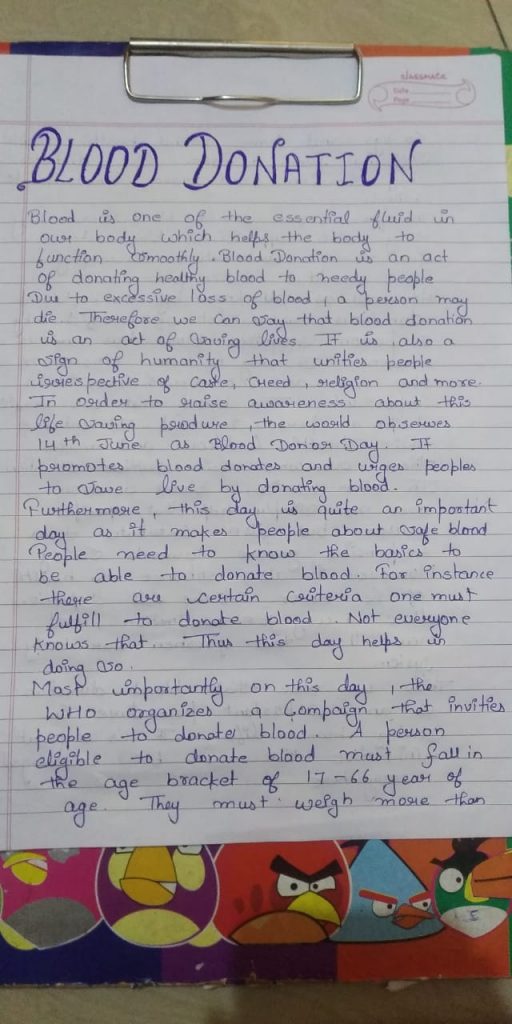 classmate
Date
Page
BLOOD DONATION
Blood is one of the essential fluid in
our body which helps the body to
function smoothly. Blood Donation is an act
of donating healthy blood to needy people
Due to excessive loss of blood, a person may
die. Therefore we can say that blood donation
is an act of saving lives. It is also a
sign of humanity that unities people
irrespective of caste, creed, religion and more.
In order to raise awareness about this
life saving produre, the world observes
14th June as Blood Donor Day. It
promotes blood donates and urges peoples
to save live by donating blood.
Furthermore, this day is quite an important
day as it makes people about safe blood
People need to know the basics to
be able to donate blood. For instance
there are certain criteria one must
fulfill to donate blood. Not everyone
knows that. Thus this day helps in
doing so.
Most importantly on this day, the
WHO organizes a Compaign that invities
people to donate blood. A person
eligible to donate blood must fall in
the age bracket of 17-66 year of
age. They must weigh more than